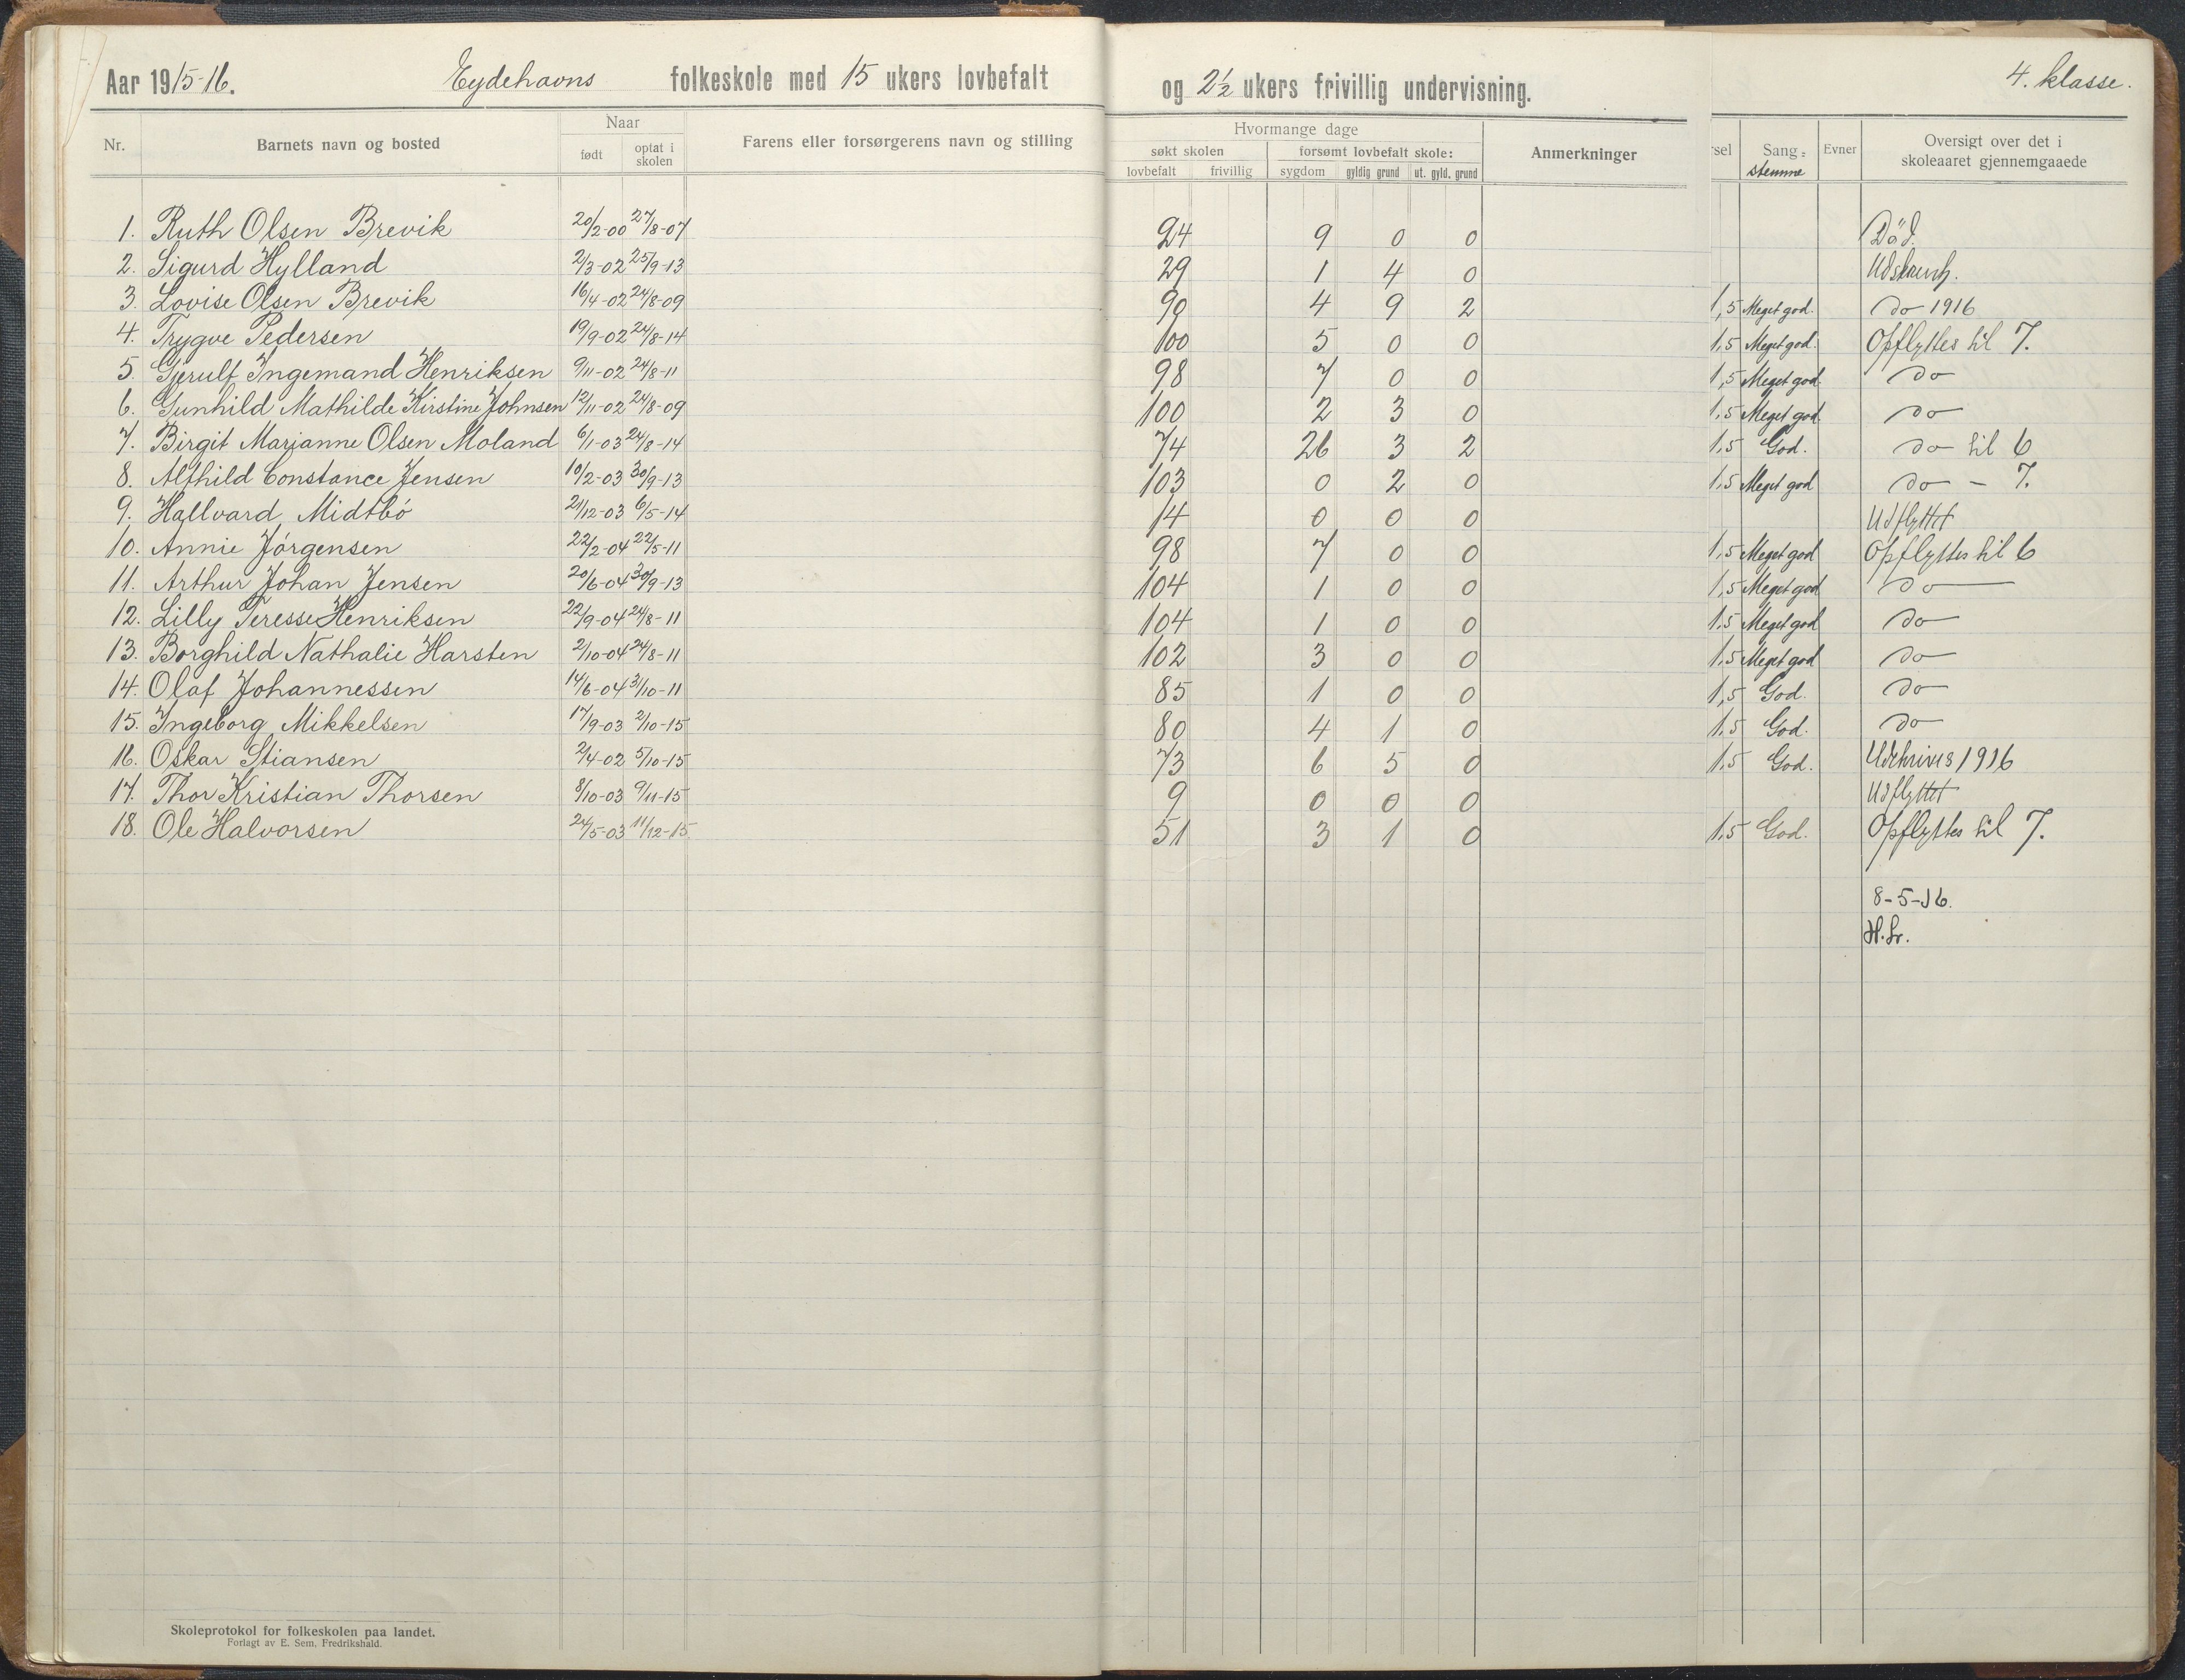 Aar 1915-16. Eydehavns folkeskole med 15 ukers lovbefalt og 2½ ukers frivillig undervisning. 4. klasse.
Nr. Barnets navn og bosted Naar født optat i skolen Farens eller forsørgerens navn og stilling Hvormange dage søkt skolen lovbefalt frivillig forsømt lovbefalt skole: sygdom gyldig grund ut. gyld. grund Anmerkninger rsel Sang= stemme Evner Oversigt over det i skoleaaret gjennemgaaede
1. Ruth Olsen Brevik 20/2-00 27/8-07 24 9 0 0 Død.
2. Sigurd Hylland 2/3-02 25/9-13 29 1 4 0
3. Lovise Olsen Brevik 16/4-02 24/8-09 90 4 9 2 1,5 Meget god. do 1916
4. Trygve Pedersen 19/9-02 24/8-14 100 5 0 0 1.5 Meget god. Opflyttes til 7.
5. Gjerulf Ingemand Henriksen 9/11-02 24/8-11 98 7 0 0 1,5 Meget god. do
6. Gunhild Mathilde Kirstine Johnsen 12/11-02 24/8-09 100 2 3 0 1.5 Meget god do
7. Birgit Marianne Olsen Moland 6/1-03 24/8-14 74 26 3 2 1,5 God. do til 6
8. Alfhild Constance Jensen 10/2-03 30/9-13 103 0 2 0 1.5 Meget god do - 7.
9. Hallvard Midtbø 21/12-03 6/5-14 14 0 0 0 Udflyttet
10. Annie Jørgensen 22/2-04 22/5-11 98 7 0 0 1,5 Meget god Opflyttes til 6
11. Arthur Johan Jensen 20/6-04 30/9-13 104 1 0 0 1,5 Meget god do
12. Lilly Teresse Henriksen 22/9-04 24/8-11 104 1 0 0 1.5 Meget god do
13. Borghild Nathalie Harsten 2/10-04 24/8-11 102 3 0 0 1.5 Meget god do
14. Olaf Johannessen 14/6-04 31/10-11 85 1 0 0 1,5 God. do
15. Ingeborg Mikkelsen 17/9-03 2/10-15 80 4 1 0 1.5 God. do
16. Oskar Stiansen 2/4-02 5/10-15 73 6 5 0 1.5 God. Udskrives 1916
17. Thor Kristian Thorsen 8/10-03 9/11-15 9 0 0 0 Udflyttet
18. Ole Halvorsen 24/5-03 11/12-15. 51 3 1 0 1.5 God. Opflyttes til 7.
8-5-16.
Skoleprotokol for folkeskolen paa landet.
Forlagt av E. Sem, Fredrikshald.